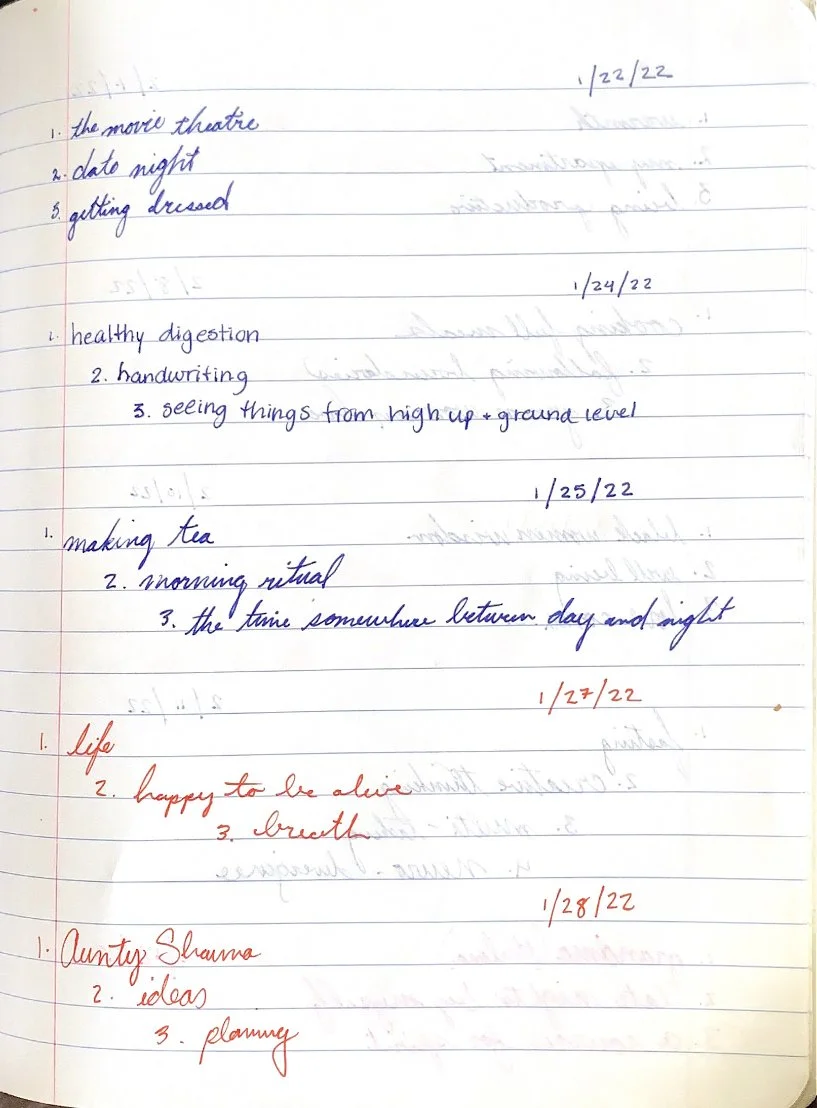 1/22/22
1. the movie theatre
2. date night
3. getting dressed
1/24/22
1. healthy digestion
2. handwriting
3. seeing things from high up + ground level
1/25/22
1. making tea
2. morning ritual
3. the time somewhere between day and night
1/27/22
1. life
2. happy to be alive
3. breath
1/28/22
1. Aunty Shauna
2. ideas
3. planning